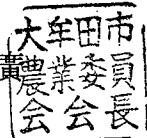 大牟田市
農業委員
会会長